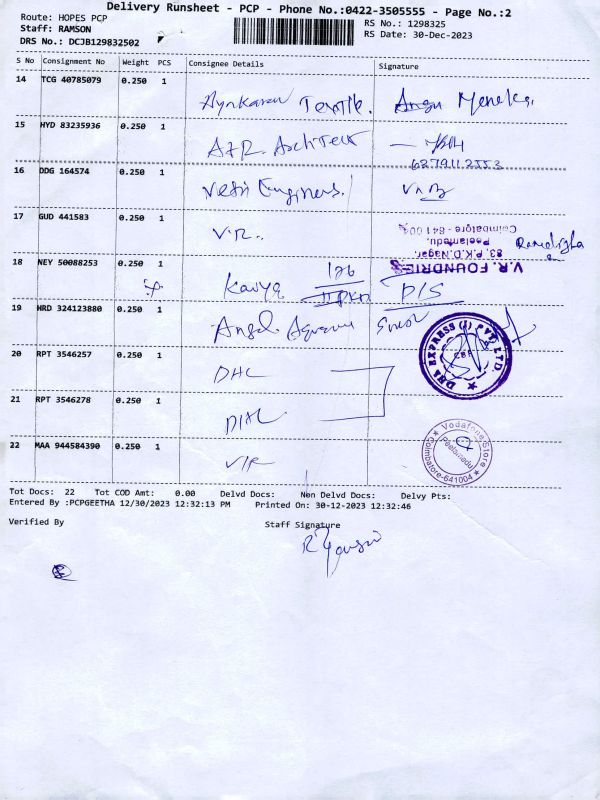 Delivery Runsheet - PCP - Phone No.:0422-3505555 - Page No.:2
Route: HOPES PCP
RS No.: 1298325
Staff: RAMSON
RS Date: 30-Dec-2023
DRS No.: DCJB129832502
S No Consignment No Weight PCS Consignee Details Signature
14 TCG 40785079 0.250 1 Textile. Meneka
15 HYD 83235936 0.250 1 AZR Architect
6879112553
16 DDG 164574 0.250 1 Vetri Engineers
17 GUD 441583 0.250 1 V.R.
V.R. FOUNDRIES
83, P.K.D.Nagar,
Peelamedu,
Coimbatore - 641 004
18 NEY 50088253 0.250 1 Kavya 126 DIS
19 HRD 324123880 0.250 1 Angel
DHL EXPRESS (I) PVT. LTD.
CBE
20 RPT 3546257 0.250 1 DHL
21 RPT 3546278 0.250 1 DHL
22 MAA 944584390 0.250 1 VIR
Vodafone Store
Peelamedu
Coimbatore-641004
Tot Docs: 22 Tot COD Amt: 0.00 Delvd Docs: Non Delvd Docs: Delvy Pts:
Entered By :PCPGEETHA 12/30/2023 12:32:13 PM Printed On: 30-12-2023 12:32:46
Verified By Staff Signature